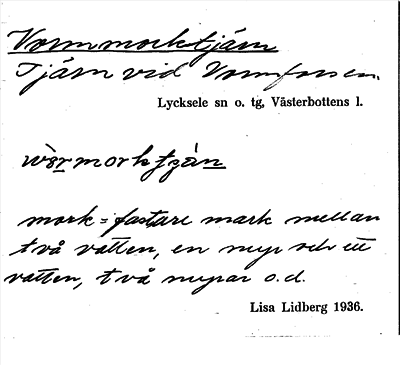 Vormmorktjärn
Tjärn vid Vormforsen.
Lycksele sn o. tg, Västerbottens l.
morktjàn
mork = fastare mark mellan
två vatten, en myr och ett
vatten, två myrar o.d.
Lisa Lidberg 1936.